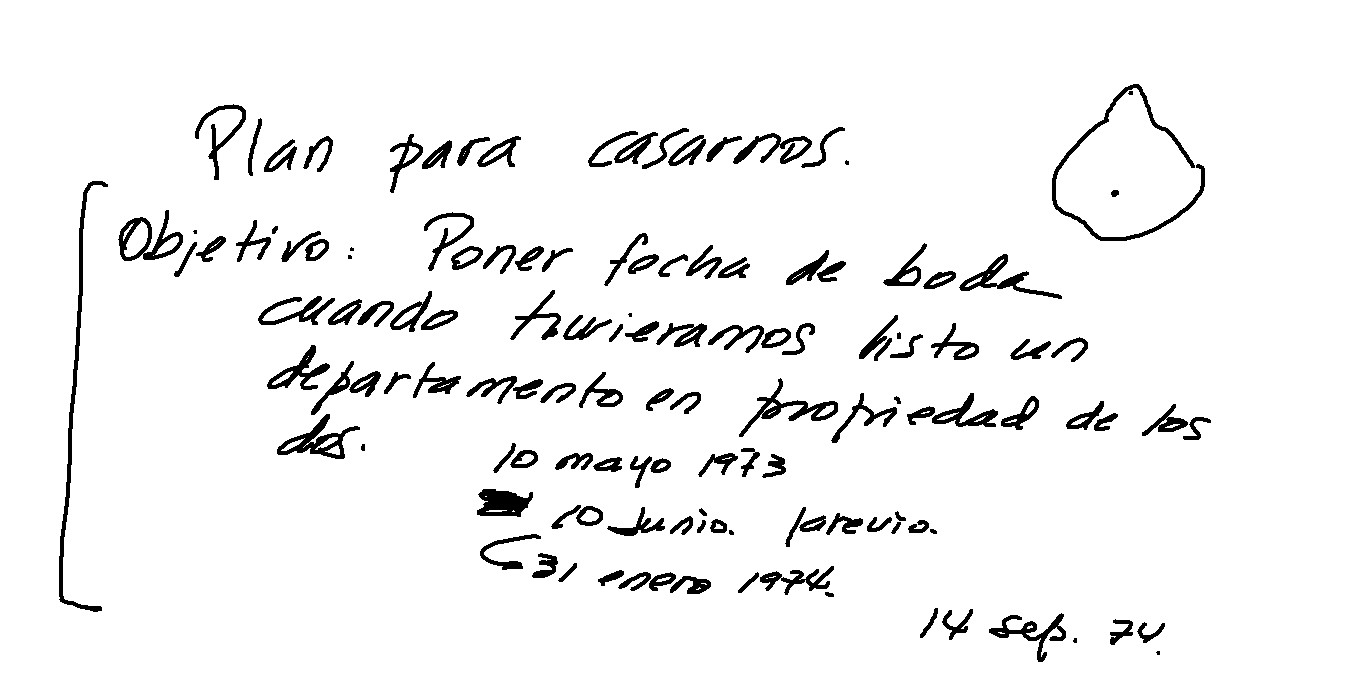 Plan para casarnos.
Objetivo: Poner fecha de boda
cuando tuvieramos listo un
departamento en propiedad de los
dos.
10 mayo 1973
10 Junio. previo.
31 enero 1974.
14 sep. 74.